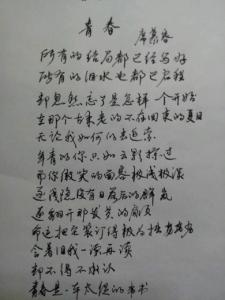 青春
席慕容
所有的结局都已经写好
所有的泪水也都已启程
却忽然忘了是怎样一个开始
在那个古老的不再回来的夏日
无论我如何的去追索
年青的你只如云影掠过
而你微笑的面容极浅极淡
逐渐隐没在日落后的群岚
遂翻开那发黄的扉页
命运将它装订得极为拙劣
含着泪我一读再读
却不得不承认
青春是一本太仓促的书